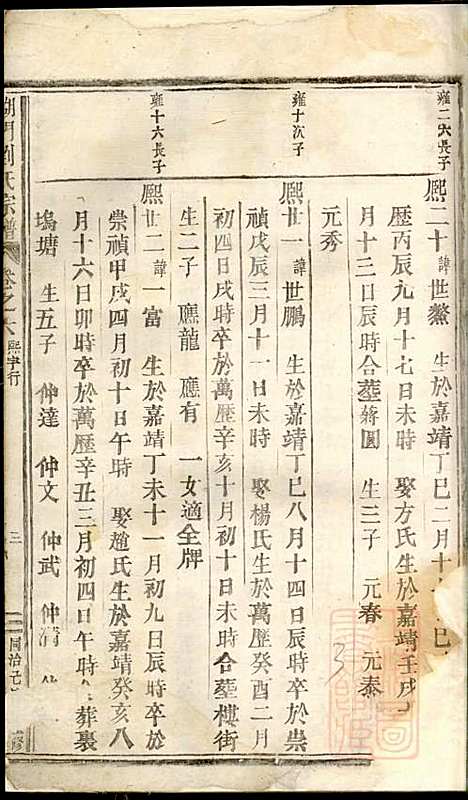 雍二六長子
熙二十 諱世鰲 生於嘉靖丁巳二月十 巳
歷丙辰九月十七日未時 娶方氏生於嘉靖壬戌
月十三日辰時合塟蔣園 生三子 元春 元泰
元秀
雍十次子
熙廿一 諱世鵬 生於嘉靖丁巳八月十四日辰時卒於崇
禎戊辰三月十一日未時 娶楊氏生於萬歷癸酉二月
初四日戌時卒於萬歷辛亥十月初十日未時合塟樓街
生二子 應龍 應有 一女適仝牌
雍十六長子
熙廿二 諱一富 生於嘉靖丁未十一月初九日辰時卒於
崇禎甲戌四月初十日午時 娶趙氏生於嘉靖癸亥八
月十六日卯時卒於萬歷辛丑三月初四日午時 葬裏
塢塘 生五子 仲達 仲文 仲武 仲
湖門劉氏宗譜 卷之六 熙字行 三 同治 修